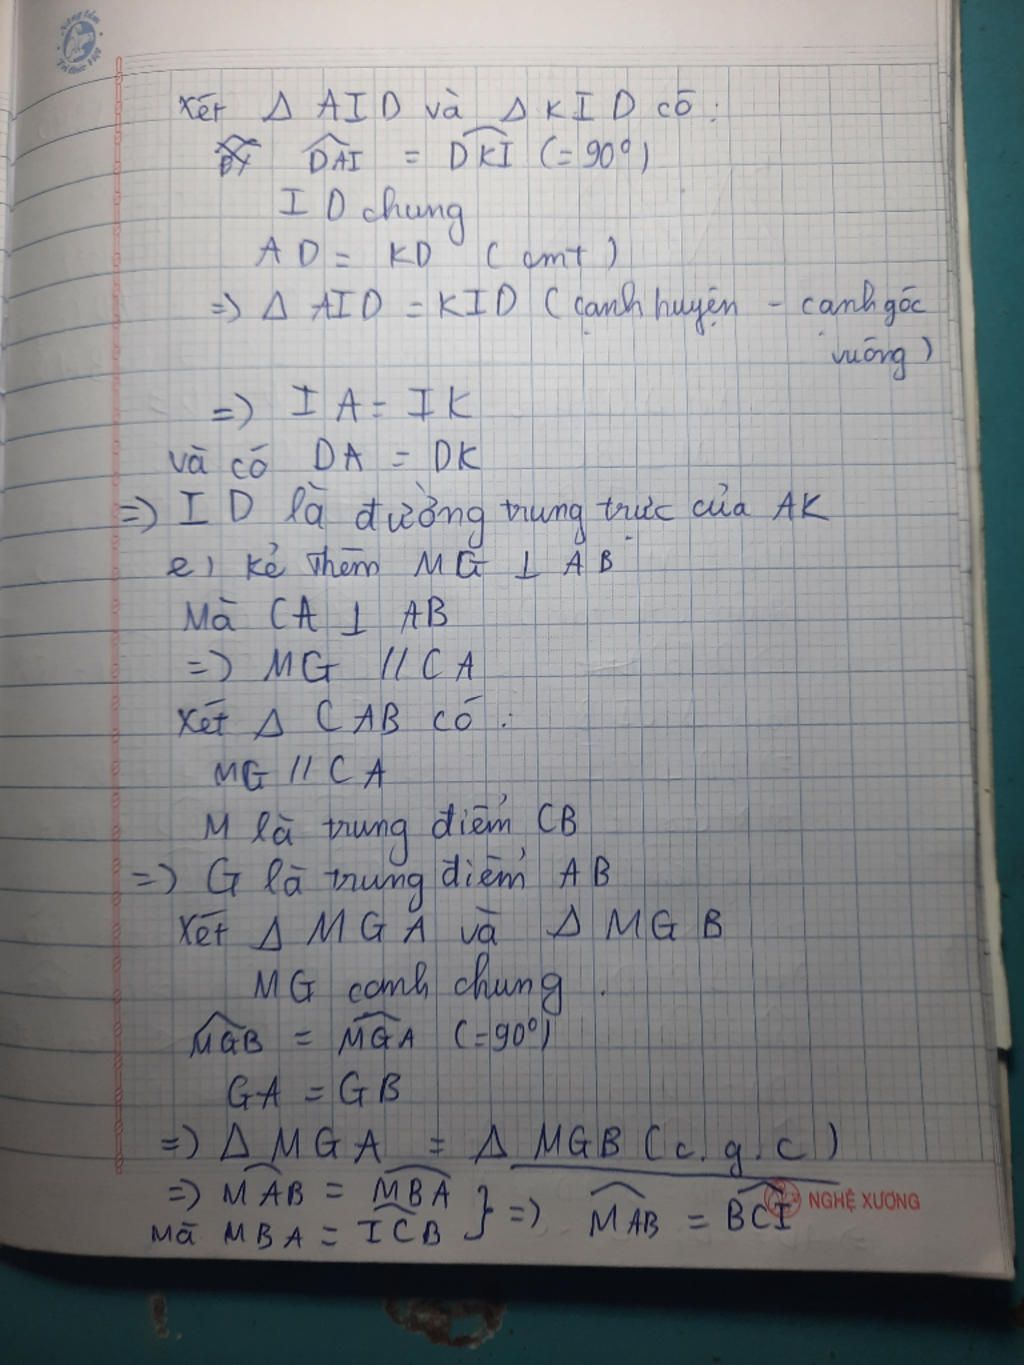 Nâng tầm
Tri thức Việt
Xét Δ AID và Δ KID có :
DAI = DKI (= 90°)
ID chung
AD = KD (cmt)
=> Δ AID = KID (cạnh huyện - canh góc
vuông)
=> IA = IK
và có DA = DK
=> ID là đường trung trực của AK
e) Kẻ thêm MG ⊥ AB
Mà CA ⊥ AB
=> MG // CA
Xét Δ CAB có :
MG // CA
M là trung điểm CB
=> G là trung điểm AB
Xét Δ MGA và Δ MGB
MG canh chung .
MGB = MGA (= 90°)
GA = GB
=> Δ MGA = Δ MGB (c.g.c)
=> MAB = MBA
mà MBA = ICB } => MAB = BCI
NGHỆ XƯƠNG